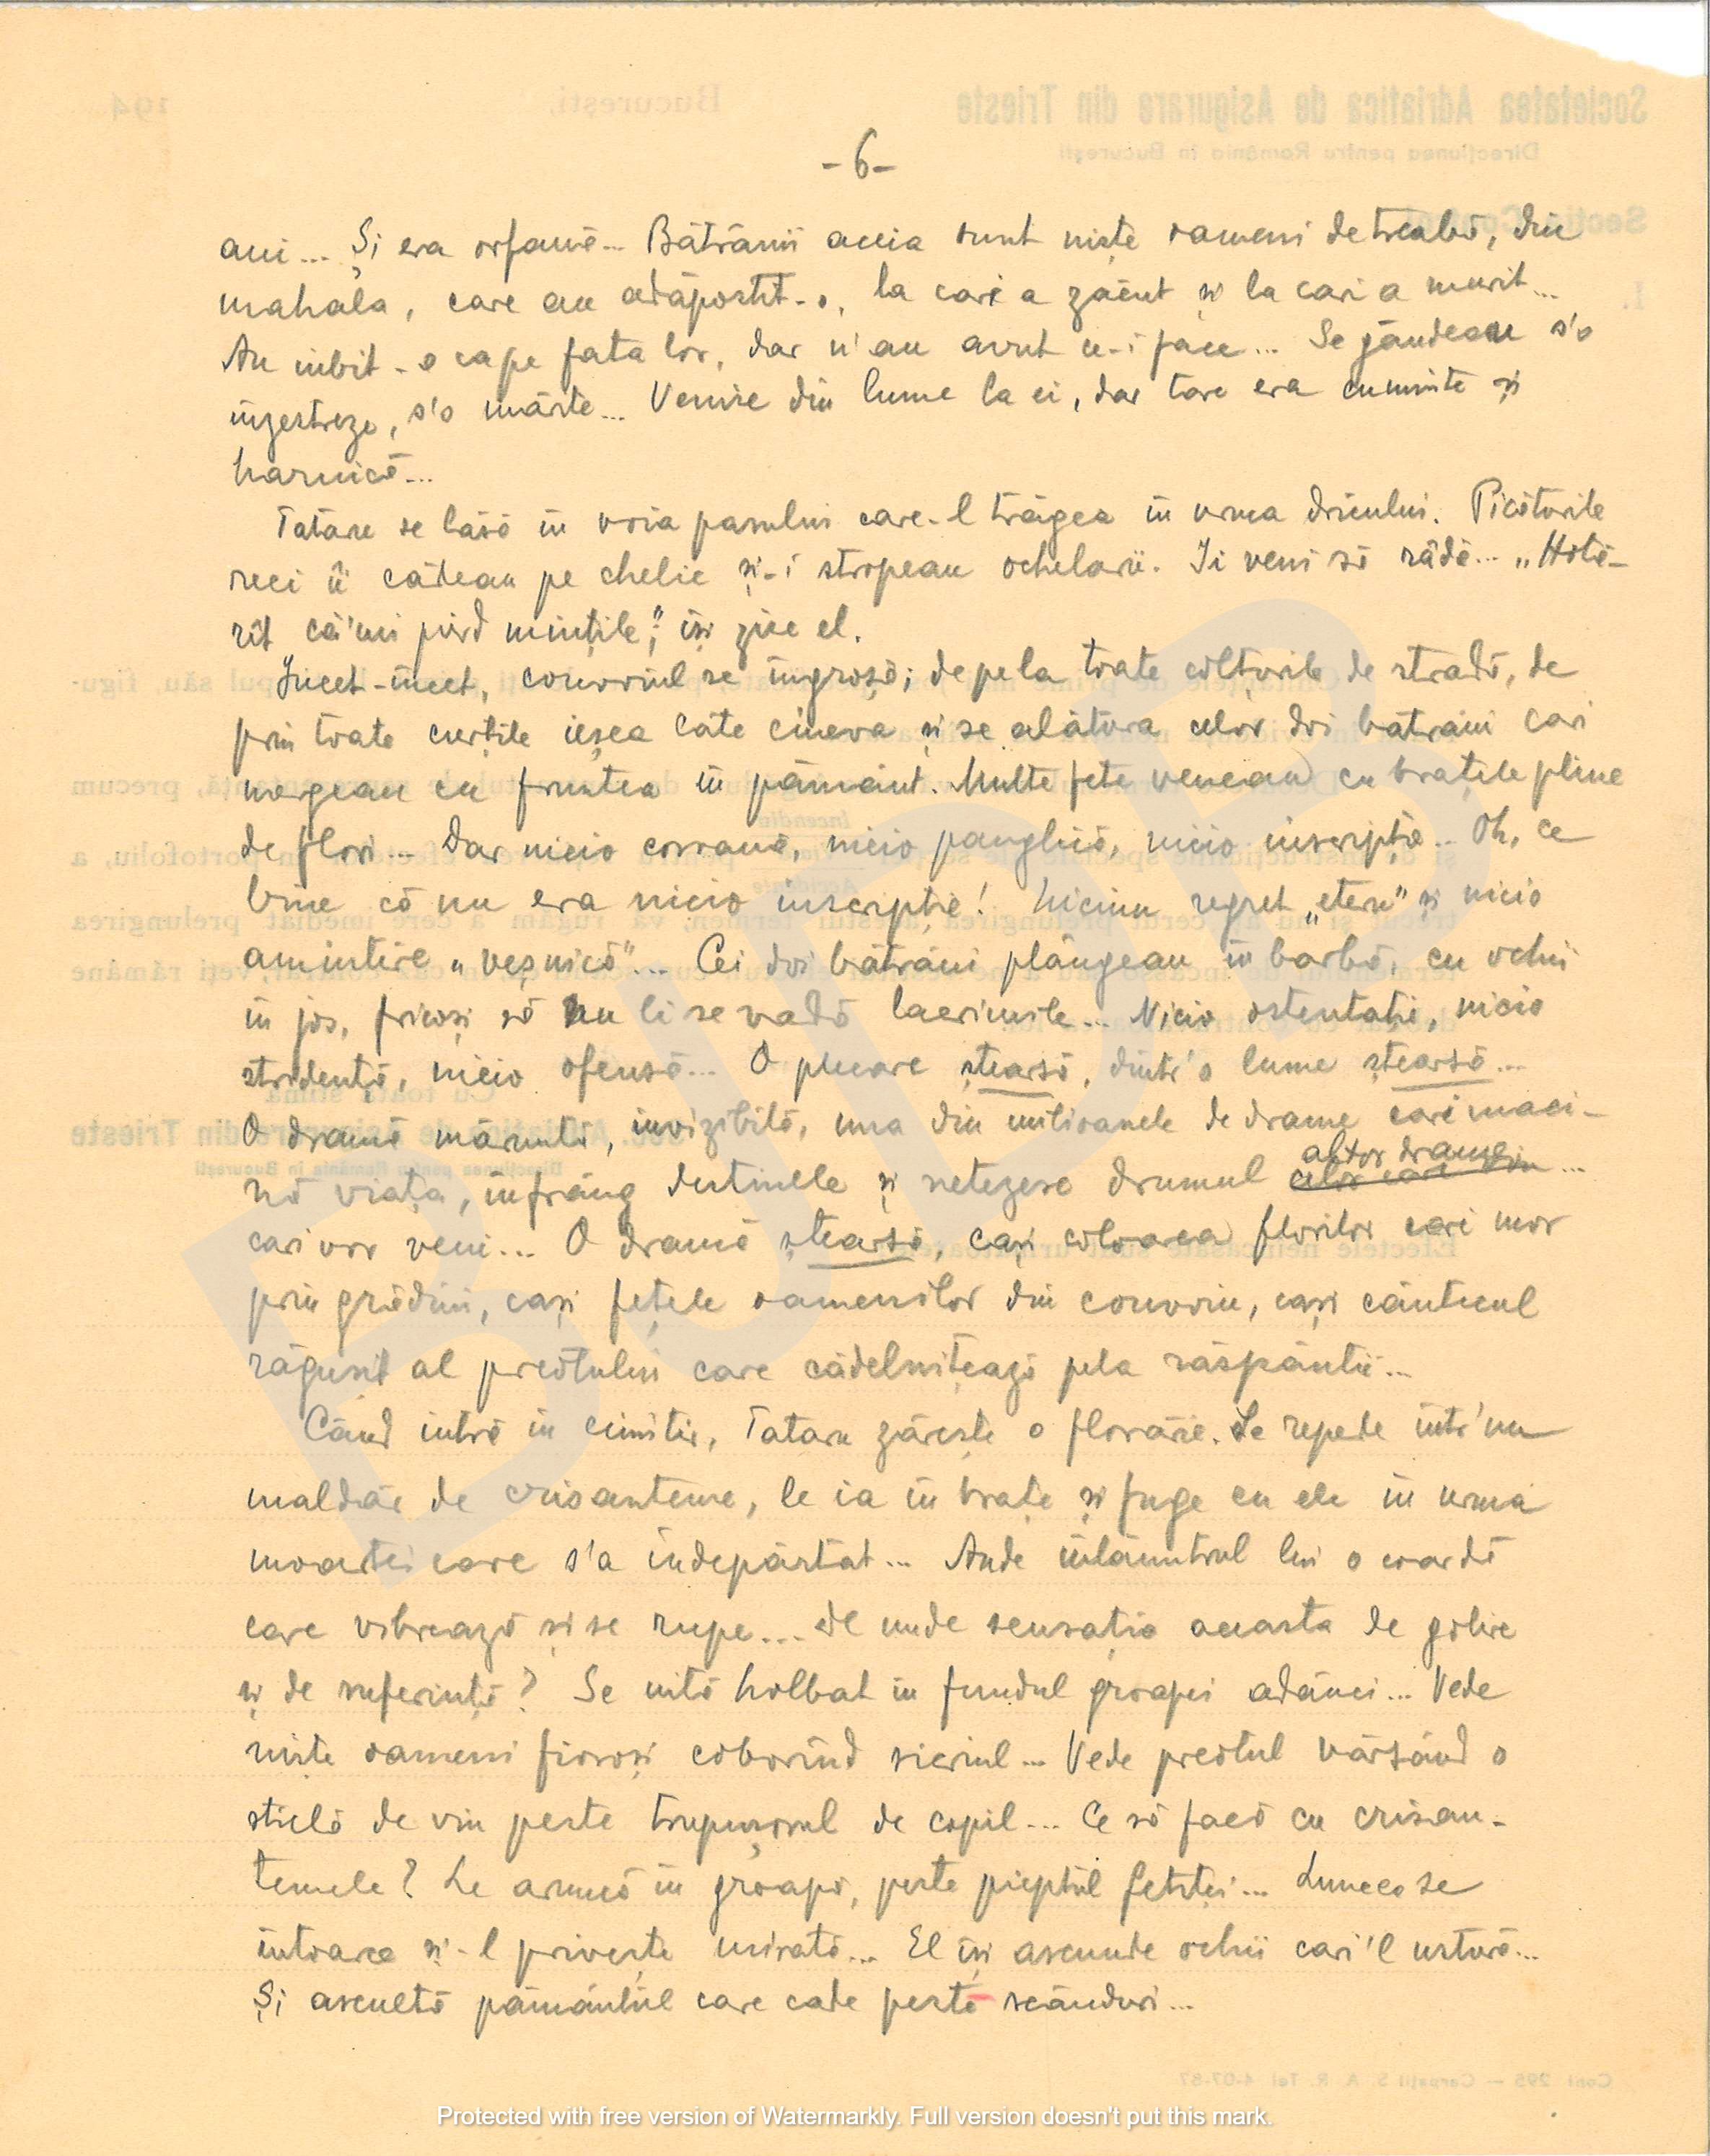 - 6 -
ani... Și era orfană... Bătrânii aceia sunt niște oameni de treabă, din
mahala, care au adăpostit-o, la cari a zăcut și la cari a murit...
Au iubit-o ca pe fata lor, dar n'au avut ce-i face... Se gândeau s'o
înzestreze, s'o mărite... Venise din lume la ei, dar tare era cuminte și
harnică...
Tataru se lăsă în voia pasului care-l trăgea în urma dricului. Picăturile
reci îi cădeau pe chelie și-i stropeau ochelarii. Ii veni să râdă... „Hotă-
rît că'mi pierd mințile”, își zise el.
Incet-încet, convoiul se îngroșă; de pe la toate colțurile de stradă, de
prin toate curțile ieșea câte cineva și se alătura celor doi bătrâni cari
mergeau cu fruntea în pământ. Multe fete veneau cu brațele pline
de flori... Dar nicio coroană, nicio panglică, nicio inscripție... Oh, ce
bine că nu era nicio inscripție! Niciun regret „etern” și nicio
amintire „veșnică”... Cei doi bătrâni plângeau în barbă, cu ochii
în jos, fricoși să nu li se vadă lacrimile... Nicio ostentație, nicio
stridență, nicio ofensă... O plecare ștearsă, dintr'o lume ștearsă...
O dramă măruntă, invizibilă, una din milioanele de drame cari maci-
nă viața, înfrâng destinele și netezesc drumul celor care vin altor drame...
cari vor veni... O dramă ștearsă, cași coloarea florilor cari mor
prin grădini, cași fețele oamenilor din convoiu, cași cântecul
răgușit al preotului care cădelnițează pela răspântii...
Când intră în cimitir, Tataru zărește o florărie. Se repede într'un
maldăr de crisanteme, le ia în brațe și fuge cu ele în urma
moartei care s'a îndepărtat... Aude înlăuntrul lui o coardă
care vibrează și se rupe... De unde senzația aceasta de golire
și de suferință? Se uită holbat în fundul groapei adânci... Vede
niște oameni fioroși coborînd sicriul... Vede preotul vărsând o
sticlă de vin peste trupușorul de copil... Ce să facă cu crisan-
temele? Le aruncă în groapă, peste pieptul fetiței... Lumea se
întoarce și-l privește mirată... El își ascunde ochii cari'l ustură...
Și ascultă pământul care cade peste scânduri...
Societatea Adriatica de Asigurare din Trieste
Direcțiunea pentru România în București
București,
194
Protected with free version of Watermarkly. Full version doesn't put this mark.